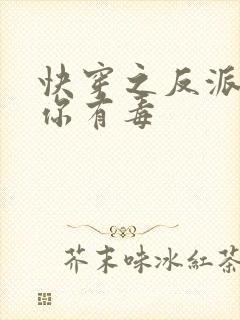 快穿之反派
你有毒
芥末味冰紅茶